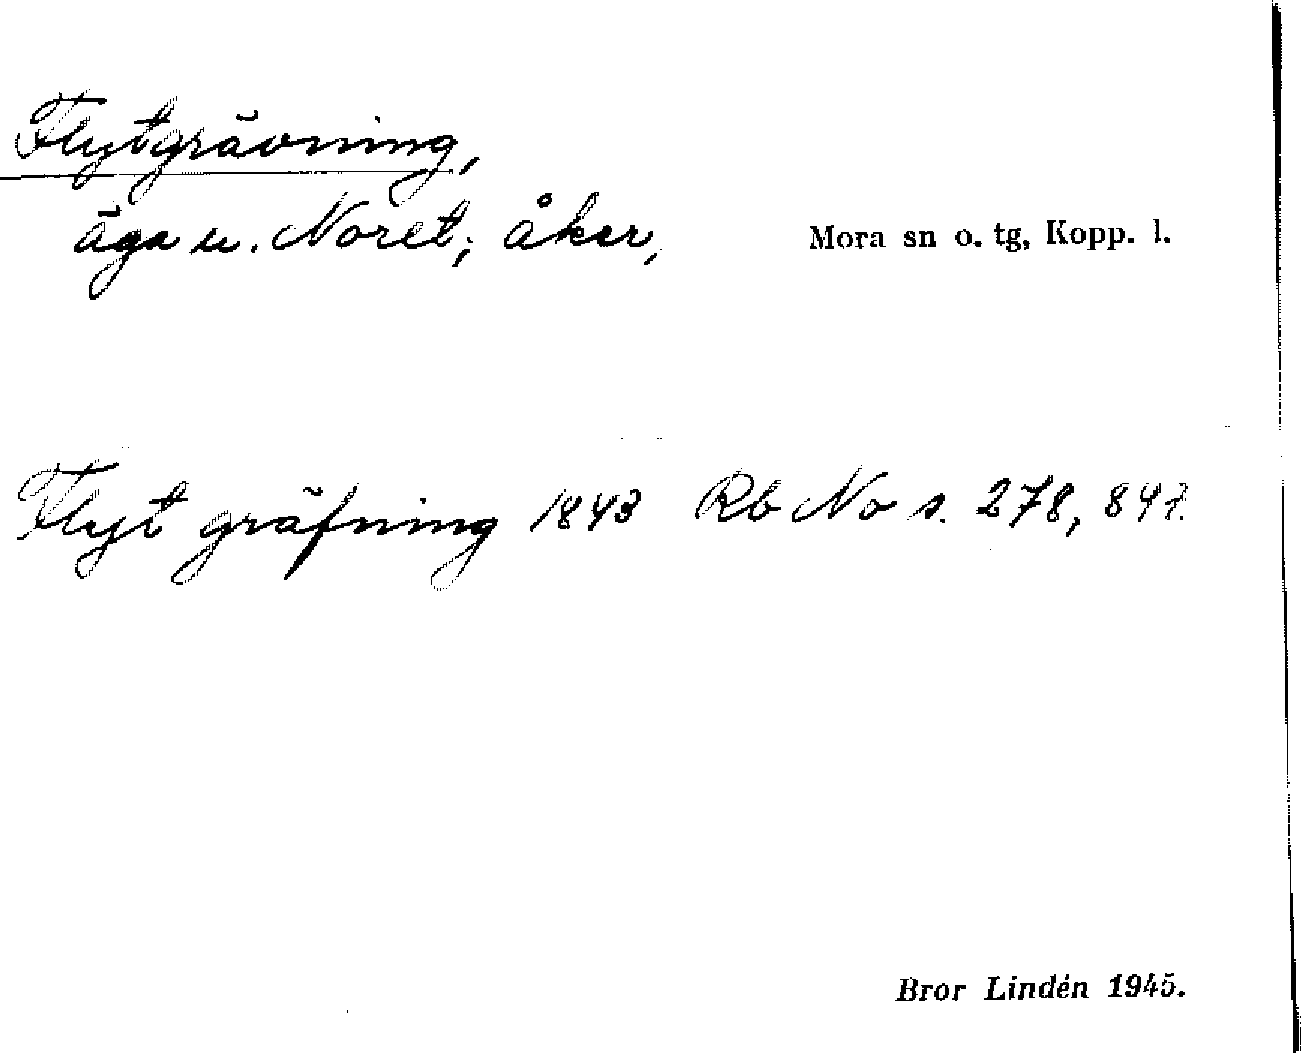 Flytgrävning,
äga u. Noret; åker,
Mora sn o. tg, Kopp. l.
Flyt gräfning 1843 Rb No s. 278,
Bror Lindén 1945.